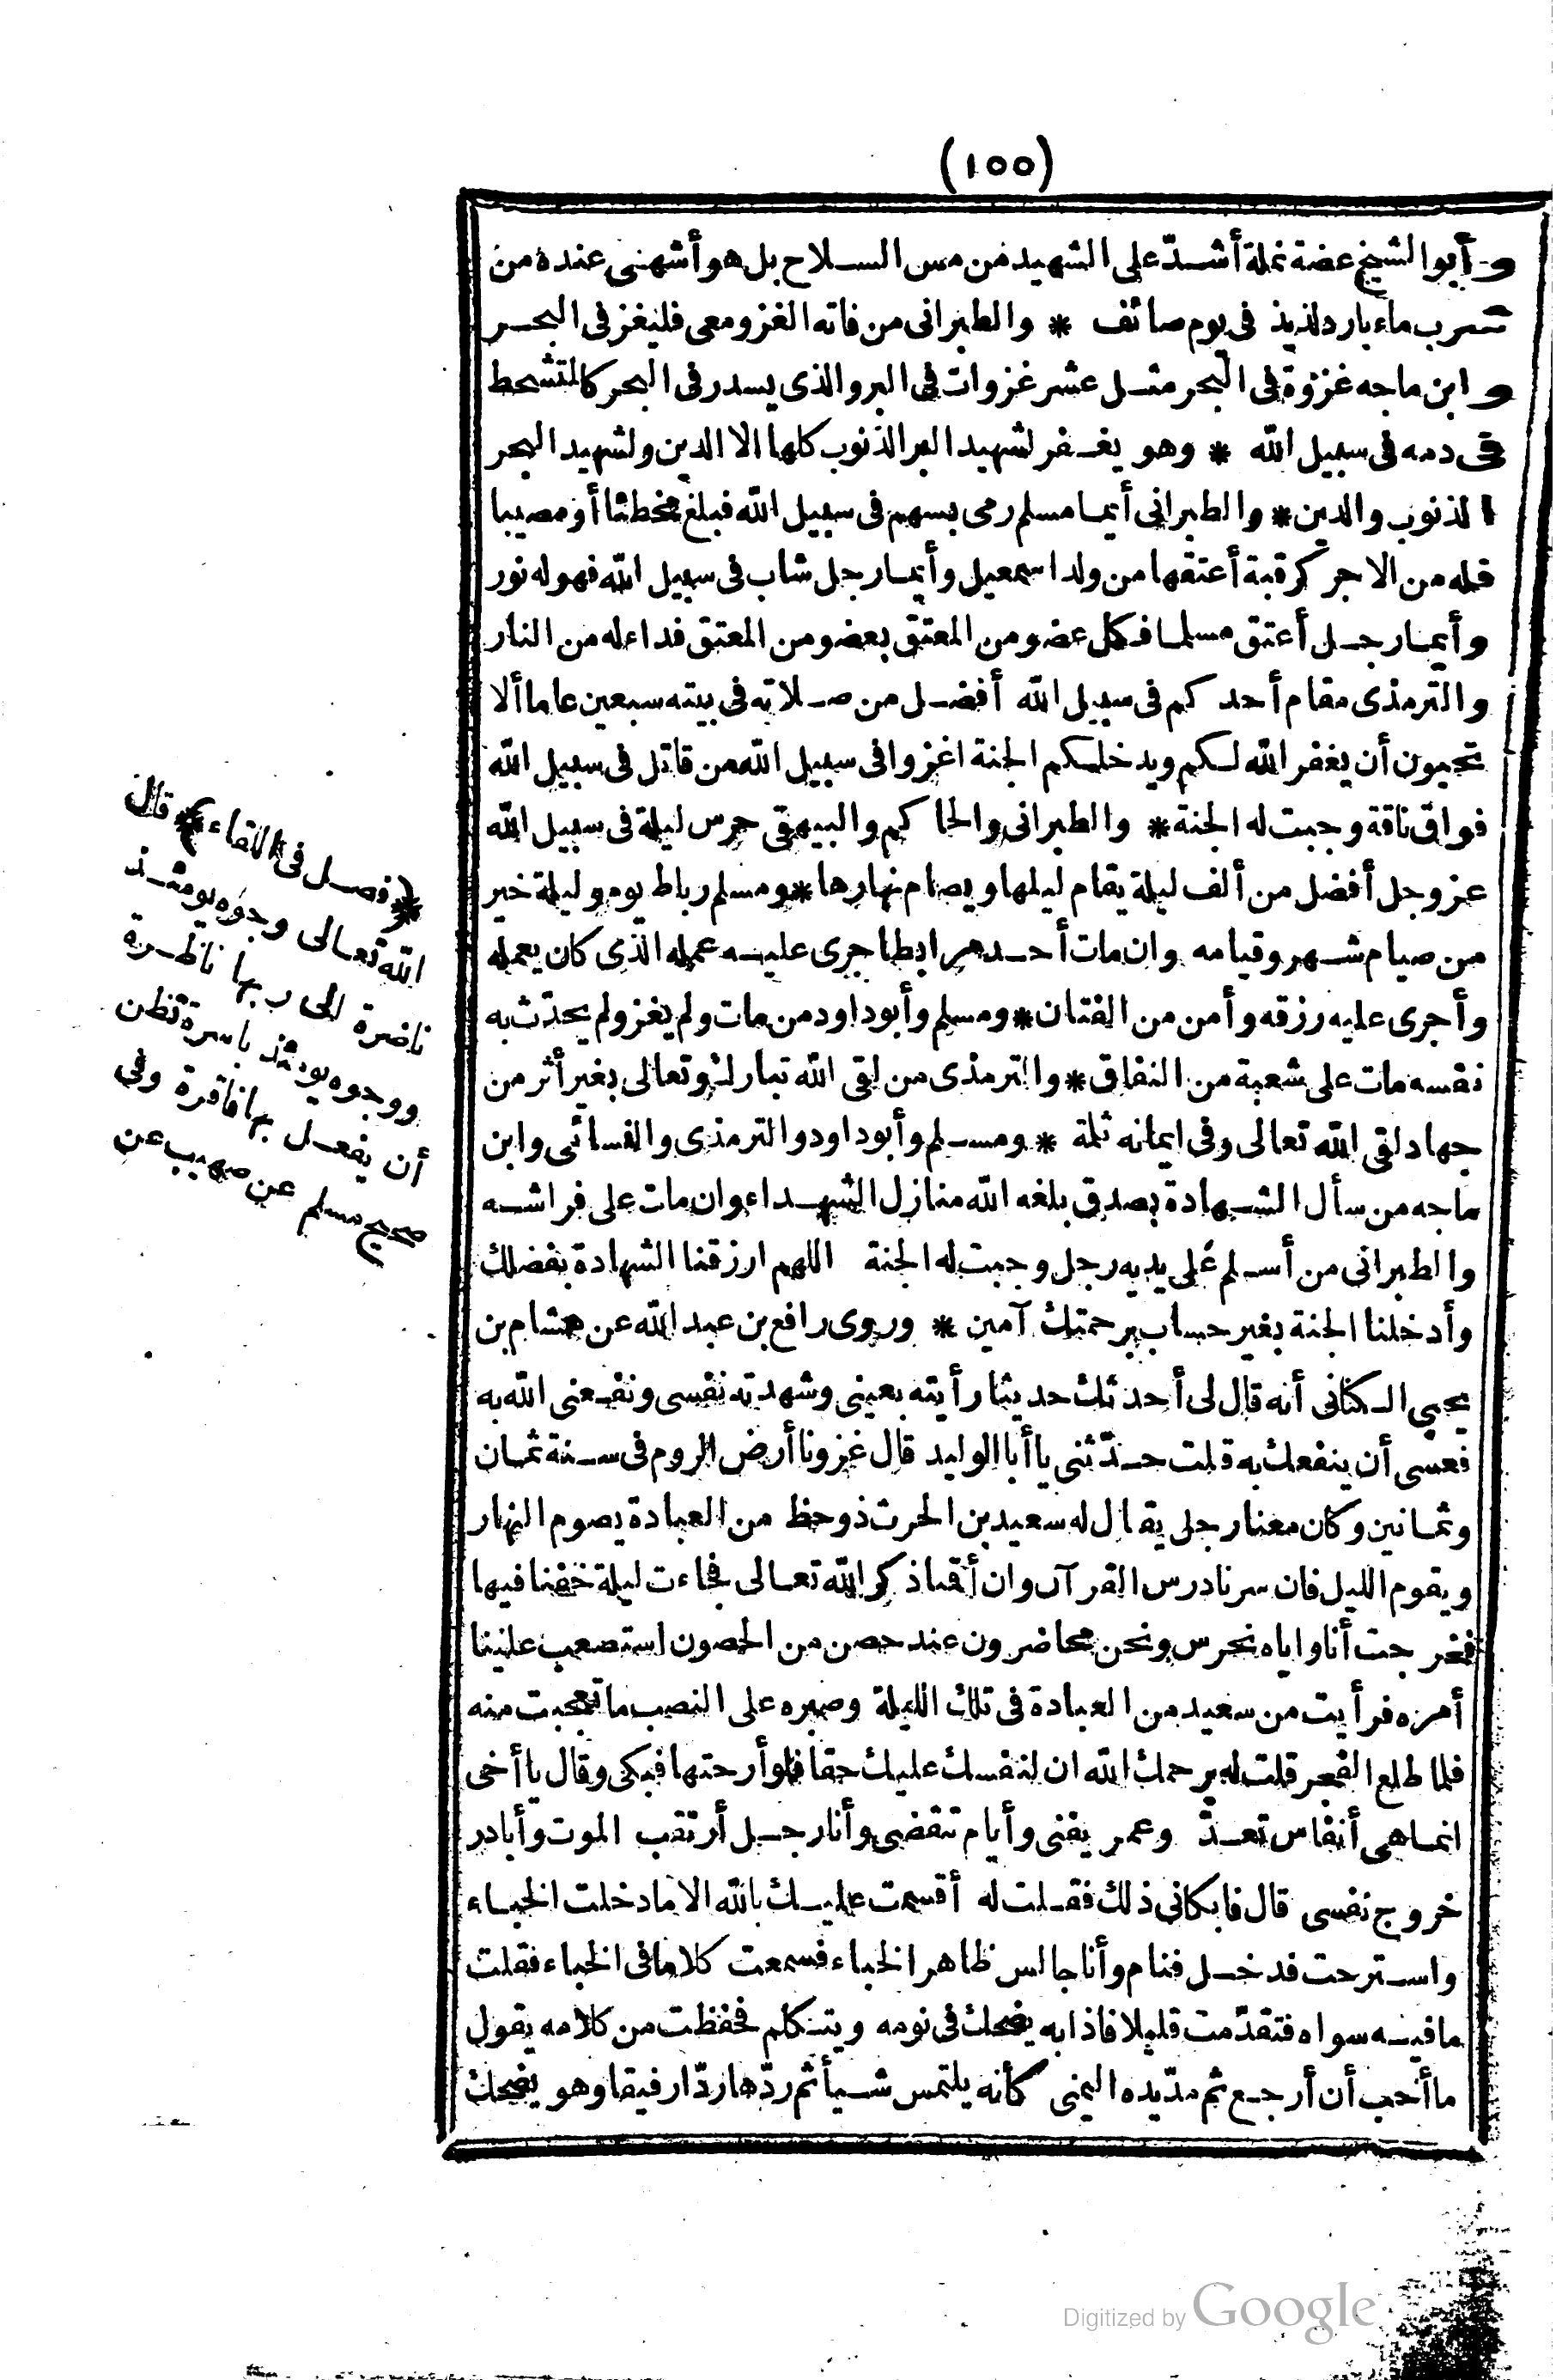 (١٥٥)
وأبو الشيخ عضة نملة أشدّ على الشهيد من مس السلاح بل هو أشهى عنده من
شرب ماء بارد لذيذ فى يوم صائف * والطبرانى من فاته الغزو معى فليغز فى البحر
وابن ماجه غزوة فى البحر مثل عشر غزوات فى البر والذى يسدر فى البحر كالمتشحط
فى دمه فى سبيل الله * وهو يغفر لشهيد البر الذنوب كلها الا الدين ولشهيد البحر
الذنوب والدين * والطبرانى أيما مسلم رمى بسهم فى سبيل الله فبلغ مخطئا أو مصيبا
فله من الاجر كرقبة أعتقها من ولد اسمعيل وأيما رجل شاب فى سبيل الله فهو له نور
وأيما رجل أعتق مسلما فكل عضو من المعتق بعضو من المعتق فداء له من النار
والترمذى مقام أحدكم فى سبيل الله أفضل من صلاته فى بيته سبعين عاما ألا
تحبون أن يغفر الله لكم ويدخلكم الجنة اغزوا فى سبيل الله من قاتل فى سبيل الله
فواق ناقة وجبت له الجنة * والطبرانى والحاكم والبيهقى حرس ليلة فى سبيل الله
عز وجل أفضل من ألف ليلة يقام ليلها ويصام نهارها * ومسلم رباط يوم وليلة خير
من صيام شهر وقيامه وان مات أحد مرابطا جرى عليه عمله الذى كان يعمله
وأجرى عليه رزقه وأمن من الفتان * ومسلم وأبو داود من مات ولم يغز ولم يحدّث به
نفسه مات على شعبة من النفاق * والترمذى من لقى الله تبارك وتعالى بغير أثر من
جهاد لقى الله تعالى وفى ايمانه ثلمة * ومسلم وأبو داود والترمذى والنسائى وابن
ماجه من سأل الشهادة بصدق بلغه الله منازل الشهداء وان مات على فراشه
والطبرانى من أسلم على يديه رجل وجبت له الجنة اللهم ارزقنا الشهادة بفضلك
وأدخلنا الجنة بغير حساب برحمتك آمين * وروى رافع بن عبد الله عن هشام بن
يحيى الكنانى أنه قال لى أحدثك حديثا رأيته بعينى وشهدته نفسى ونفعنى الله به
فعسى أن ينفعك به قلت حدّثنى يا أبا الوليد قال غزونا أرض الروم فى سنة ثمان
وثمانين وكان معنا رجل يقال له سعيد بن الحرث ذو حظ من العبادة يصوم النهار
ويقوم الليل فان سرنا درس القرآن وان أقمنا ذكر الله تعالى فجاءت ليلة خفنا فيها
فخرجت أنا واياه نحرس ونحن محاضرون عند حصن من الحصون استصعب علينا
أمره فرأيت من سعيد من العبادة فى تلك الليلة وصبره على النصب ما تعجبت منه
فلما طلع الفجر قلت له يرحمك الله ان لنفسك عليك حقا فلو أرحتها فبكى وقال يا أخى
انما هى أنفاس تعدّ وعمر يفنى وأيام تنقضى وأنا رجل أرتقب الموت وأبادر
خروج نفسى قال فابكانى ذلك فقلت له أقسمت عليك بالله الا ما دخلت الخباء
واسترحت فدخل فنام وأنا جالس ظاهر الخباء فسمعت كلاما فى الخباء فقلت
ما فيه سواه فتقدّمت قليلا فاذا به يضحك فى نومه ويتكلم فحفظت من كلامه يقول
ما أحب أن أرجع ثم مدّ يده اليمنى كأنه يلتمس شيأ ثم ردّها ردّا رفيقا وهو يضحك
*(فصل فى اللقاء)* قال
الله تعالى وجوه يومئذ
ناضرة الى ربها ناظرة
ووجوه يومئذ باسرة تظن
أن يفعل بها فاقرة وفى
صحيح مسلم عن صهيب عن
Digitized by Google